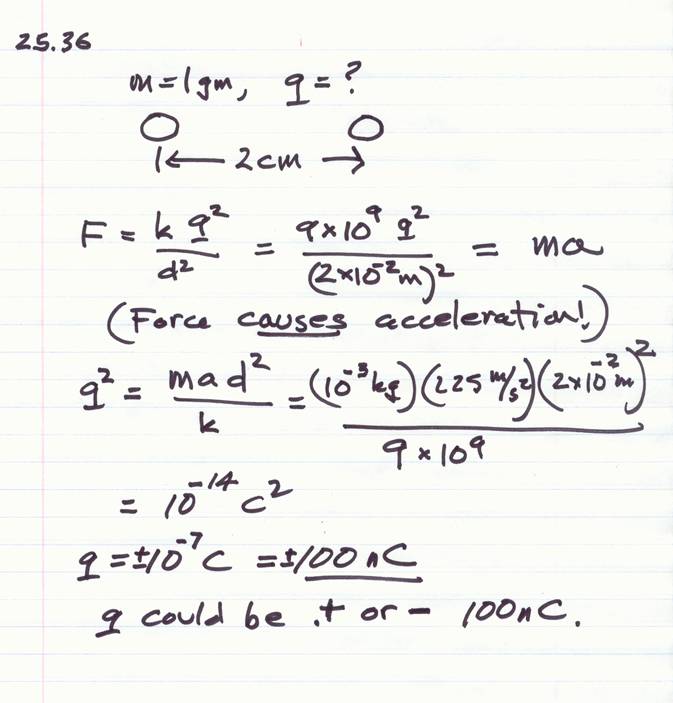 25.36
m = 1 gm, q = ?
|← 2 cm →
F = k q² / d² = 9×10⁹ q² / (2×10⁻² m)² = ma
(Force causes acceleration!)
q² = mad² / k = (10⁻³ kg)(225 m/s²)(2×10⁻² m)² / 9×10⁹
= 10⁻¹⁴ C²
q = ±10⁻⁷ C = ±100 nC
q could be + or − 100 nC.